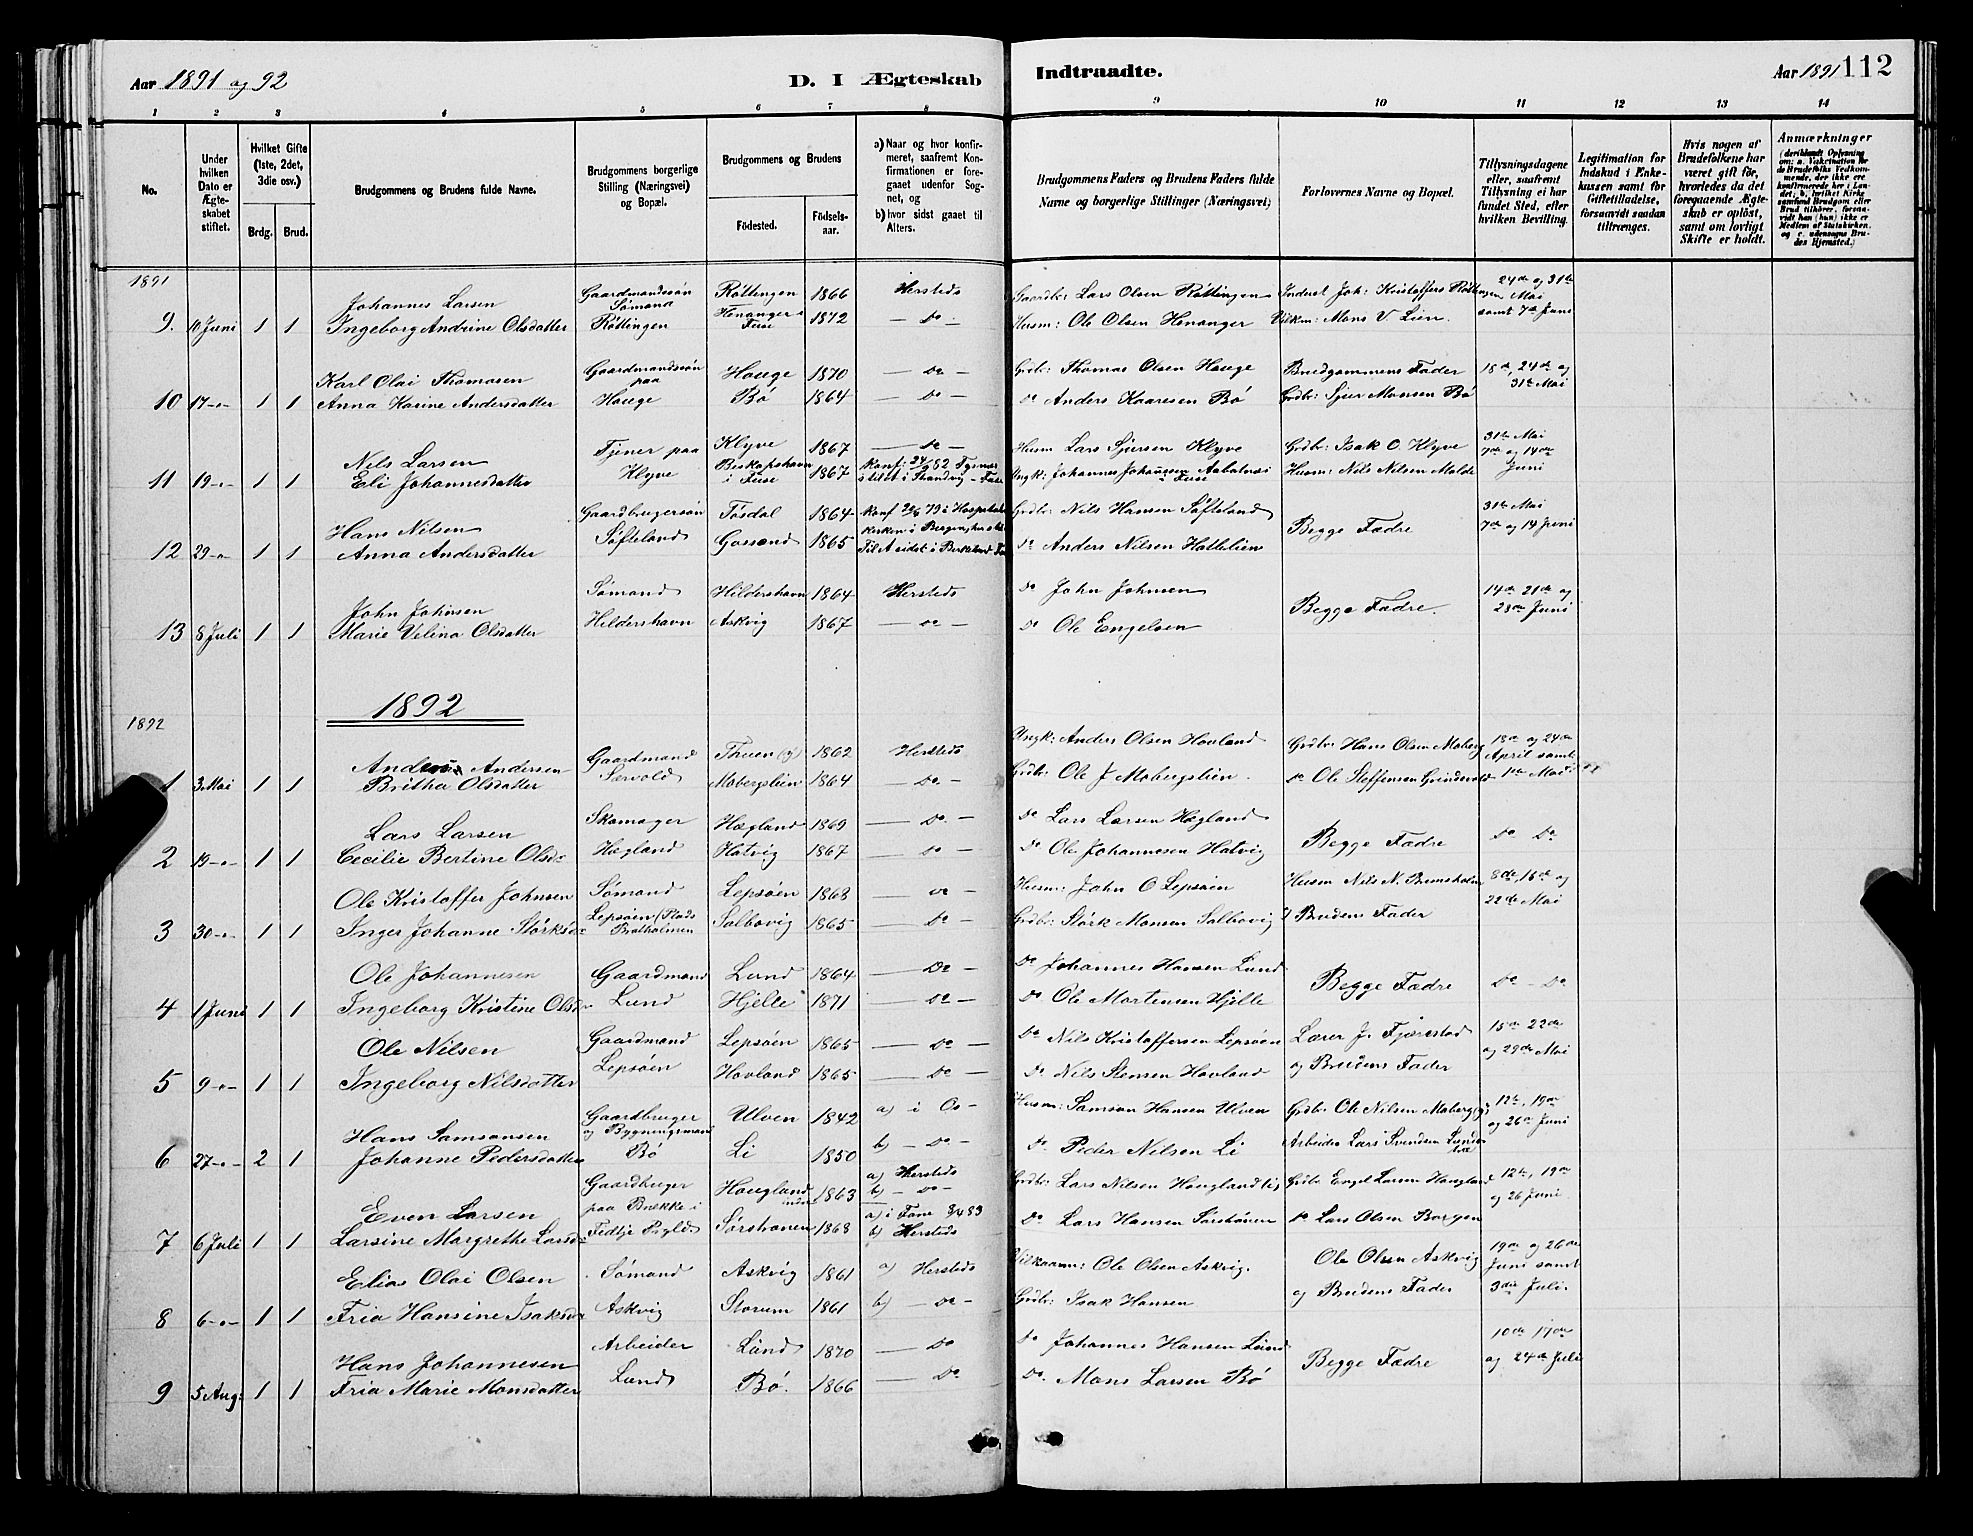 Aar 1891 og 92
D. I Ægteskab
Indtraadte.
Aar 1891
112
1 2 3 4 5 6 7 8 9 10 11 12 13 14
No.
Under hvilken Dato er Ægteskabet stiftet.
Hvilket Gifte (1ste, 2det, 3die osv.)
Brdg. Brud.
Brudgommens og Brudens fulde Navne.
Brudgommens borgerlige Stilling (Næringsvei) og Bopæl.
Brudgommens og Brudens
Fødested. Fødselsaar.
a) Naar og hvor konfirmeret, saafremt Konfirmationen er foregaaet udenfor Sognet, og
b) hvor sidst gaaet til Alters.
Brudgommens Faders og Brudens Faders fulde Navne og borgerlige Stillinger (Næringsvei)
Forlovernes Navne og Bopæl.
Tillysningsdagene eller, saafremt Tillysning ei har fundet Sted, efter hvilken Bevilling.
Legitimation for Indskud i Enkekassen samt for Giftetilladelse, forsaavidt saadan tiltrænges.
Hvis nogen af Brudefolkene har været gift før, hvorledes da det foregaaende Ægteskab er opløst, samt om lovligt Skifte er holdt.
Anmærkninger
1891
Johannes Larsen Gaardmandssøn Sømand Røttingen 1866 Hersteds Gaardbr: Lars Olsen Røttingen Inderst Joh: Kristoffers Røttingen 24de og 31te Mai
9. 10 Juni 1 1 Ingeborg Andrine Olsdatter Røttingen Henanger i Fuse 1872 — Do — Husm: Ole Olsen Henanger Vilkm: Mons V. Lien. samt 7de Juni
Karl Olai Thomasen Gaardmandssøn paa Hauge 1870 — Do — Grdbr: Thomas Olsen Hauge Brudgommens Fader 18de, 24de og
10 17-"- 1 1 Anna Karine Andersdatter Hauge Bø 1864 — Do — Do Anders Kaaresen Bø Grdbr: Sjur Monsen Bø 31te Mai
Nils Larsen Tjener paa Klyve 1867 — Do — Husm Lars Sjursen Klyve Grdbr: Isak O. Klyve 31te Mai 7de og 14de
11 19-"- 1 1 Eli Johannesdatter Klyve i Fuse 1867 Ungk: Johannes Johannesen i Fuse Husm: Nils Nilsen Molde Juni
Hans Nilsen Gaardbrugersøn Tøsdal 1864 Grdbr: Nils Hansen Søfteland 31te Mai
12 29-"- 1 1 Anna Andersdatter Søfteland 1865 Do Anders Nilsen Begge Fædre 7de og 14 Juni
John Johnsen Sømand Hildershavn 1864 Hersteds Do John Johnsen 14de 21de og
13 8 Juli 1 1 Marie Velina Olsdatter Hildershavn Askvig 1867 — Do — Do Ole Engelsen Begge Fædre. 28de Juni
1892
1892
Andersen Gaardmand Thuen 1862 Hersteds Ungk: Anders Olsen Hovland Grdbr: Hans Olsen Moberg 18de og 24de April samt
1 3 Mai 1 1 Britha Olsdatter Særvold Mobergslien 1864 — Do — Grdbr: Ole J Mobergslien. Do Ole Steffensen Grindevold 1ste Mai
Lars Larsen Skomager Hægland 1869 — Do — Do Lars Larsen Hægland
2 19-"- 1 1 Cecilie Bertine Olsd: Hægland Hatvig 1867 — Do — Do Ole Johannesen Hatvig Begge Fædre Do Do
Ole Kristoffer Johnsen Sømand Lepsøen 1868 — Do — Husm: John O Lepsøen Husm Nils N. Brunsholm 8de, 15de og
3 30-"- 1 1 Inger Johanne Størksd: Lepsøen (Plads 1865 — Do — Grdbr: Størk Monsen Salbovig Brudens Fader 22de Mai
Ole Johannesen Gaardmand Lund 1864 — Do — Do Johannes Hansen Lund
4 1 Juni 1 1 Ingeborg Kristine Olsd: Lund Hjelle 1871 — Do — Do Ole Mortensen Hjelle Begge Fædre Do — Do
Ole Nilsen Gaardmand Lepsøen 1865 — Do — Do Nils Kristoffersen Lepsøen Lærer J. Fjærestad 15de 22de
5 9-"- 1 1 Ingeborg Nilsdatter Lepsøen Hovland 1865 — Do — Do Nils Stensen Hovland og Brudens Fader og 29de Mai
Hans Samsonsen Gaardbruger og Bygningsmand Ulven 1842 a) i Os — Husm: Samson Hansen Ulven Grdbr: Ole Nilsen Moberg 12te, 19de og 26de Juni
6 27-"- 2 1 Johanne Pedersdatter Bø Li 1850 b) — Do — Do Peder Nilsen Li Arbeider Lars Svendsen
Even Larsen Gaardbruger paa Brække i Hougland 1863 a) Hersteds b) — Do — Grdbr: Lars Nilsen Hougland Grdbr Engel Larsen Hougland 12te, 19de
7 6 Juli 1 1 Larsine Margrethe Larsd: Fedtje Sørstrønen 1868 a) i Fane b) Hersteds Do Lars Hansen Sørstrønen Do Lars Olsen Borgen og 26 Juni
Elias Olai Olsen Sømand Askvig 1861 a) Hersteds Vilkaarm: Ole Olsen Askvig. Ole Olsen Askvig 19de og 26de Juni samt
8 6-"- 1 1 Fria Hansine Isaksd: Askvig Storum 1861 b) — Do — Grdbr: Isak Hansen og Brudens Fader 3die Juli.
Hans Johannesen Arbeider Lund 1870 — Do Do Johannes Hansen Lund 10de 17de
9 5 Aug: 1 1 Fria Marie Monsdatter Lund Bø. 1866 — Do Do. Mons Larsen Bø Begge Fædre og 24de Juli